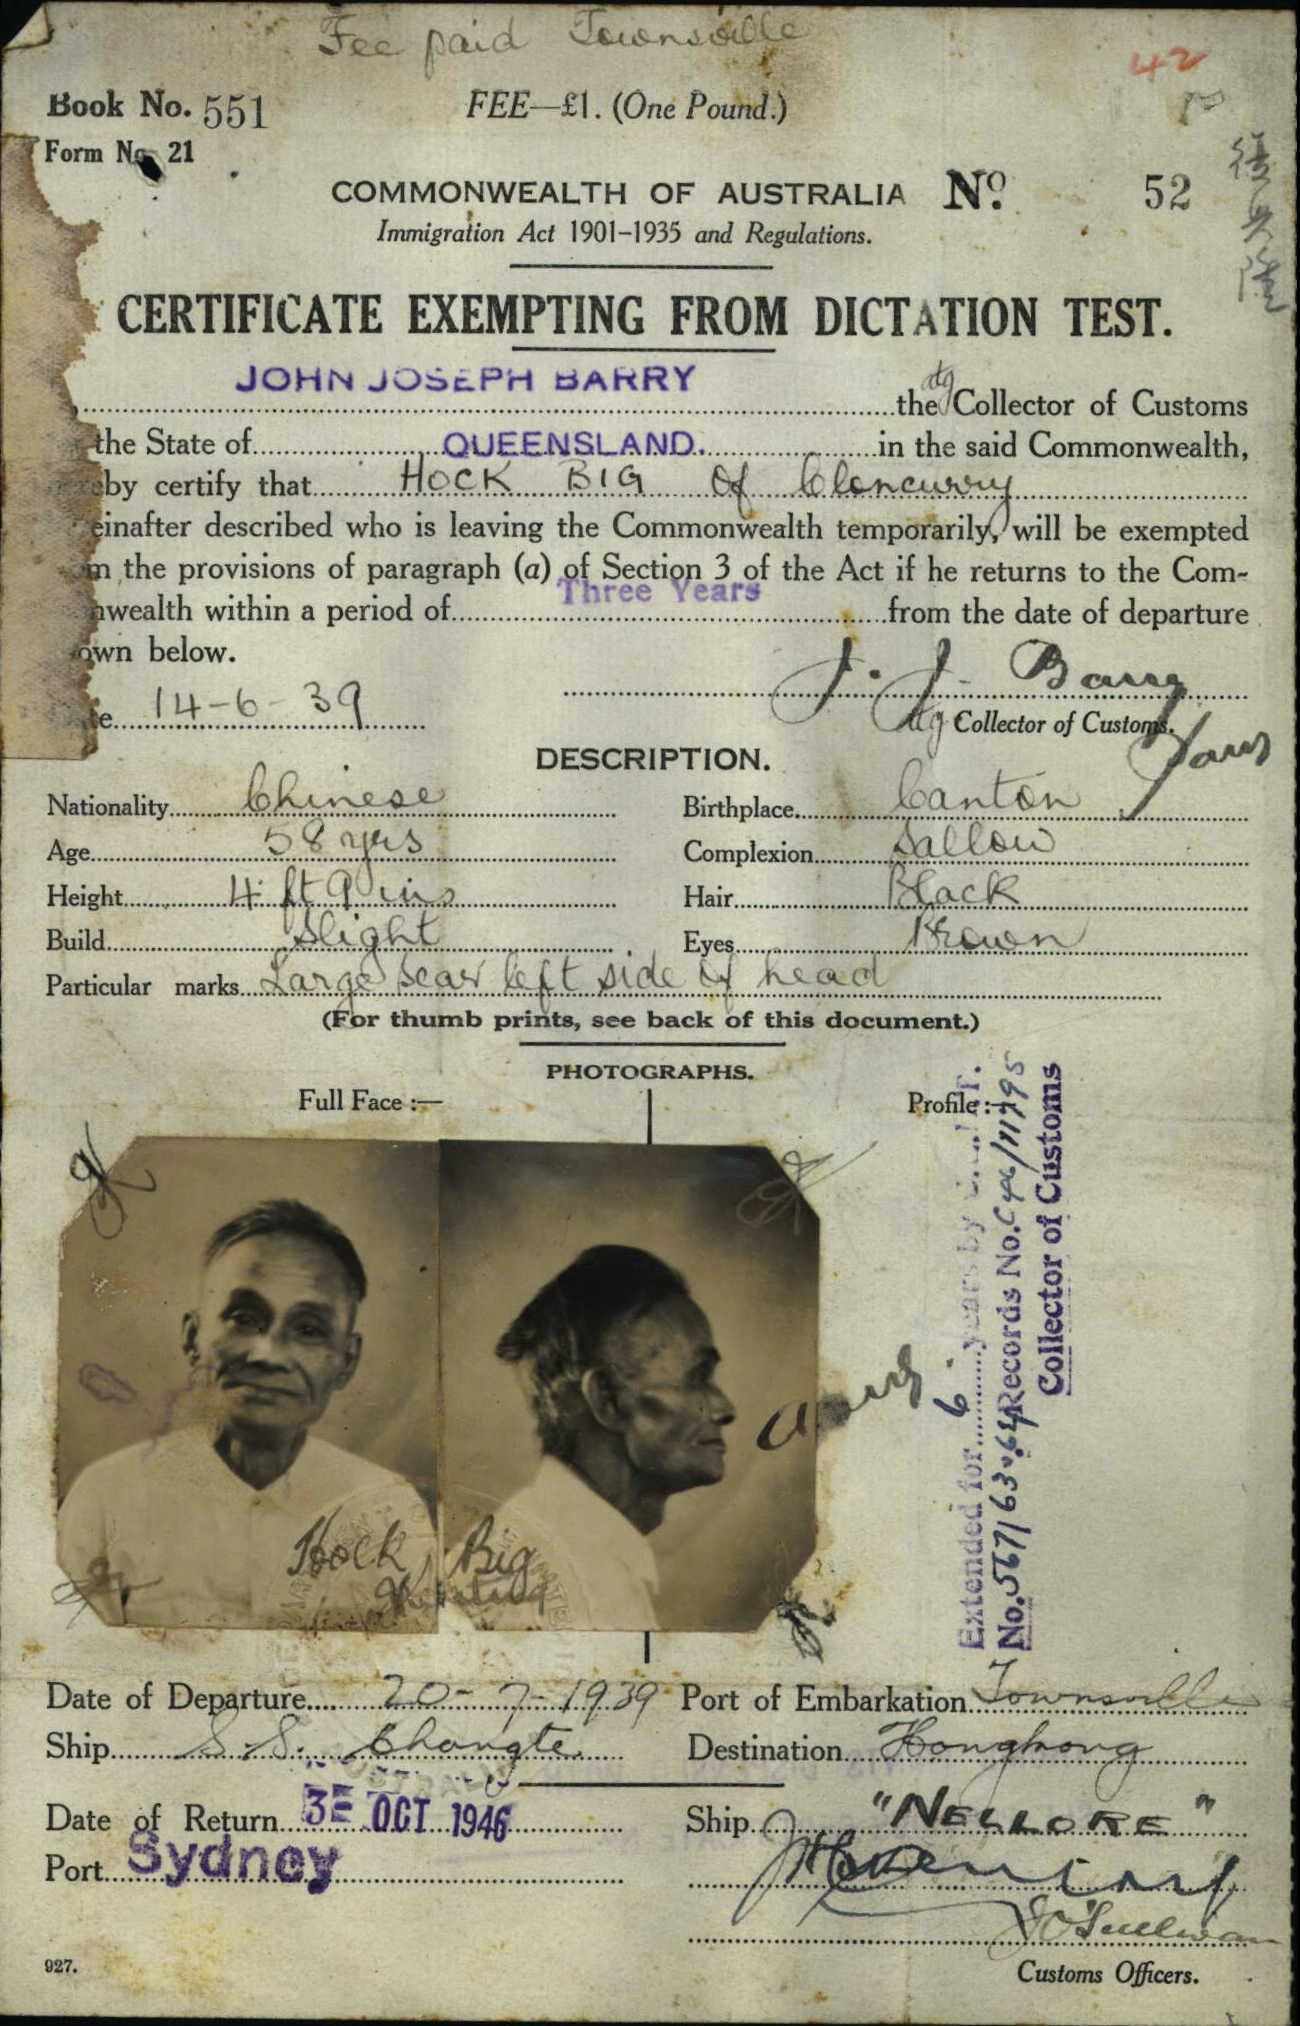 Fee paid Townsville
42
Book No. 551
FEE—£1. (One Pound.)
Form No. 21
COMMONWEALTH OF AUSTRALIA No. 52
Immigration Act 1901-1935 and Regulations.
CERTIFICATE EXEMPTING FROM DICTATION TEST.
JOHN JOSEPH BARRY
the Collector of Customs
the State of QUEENSLAND. in the said Commonwealth,
eby certify that HOCK BIG of Cloncurry
einafter described who is leaving the Commonwealth temporarily, will be exempted
m the provisions of paragraph (a) of Section 3 of the Act if he returns to the Com-
nwealth within a period of Three Years from the date of departure
own below.
J. J. Barry
te 14-6-39
Collector of Customs.
DESCRIPTION.
Nationality Chinese Birthplace Canton
Age 58 yrs Complexion Sallow
Height 4 ft 9 ins Hair Black
Build Slight Eyes Brown
Particular marks Large scar left side of head
(For thumb prints, see back of this document.)
PHOTOGRAPHS.
Full Face :— Profile :—
Extended for 6 years by
No. 567/63.64 Records No. C46/11795
Collector of Customs
Hock Big
Date of Departure 20-7-1939 Port of Embarkation Townsville
Ship S.S. Changte Destination Hongkong
Date of Return 3 OCT 1946 Ship "NELLORE"
Port Sydney
J O'Sullivan
927.
Customs Officers.